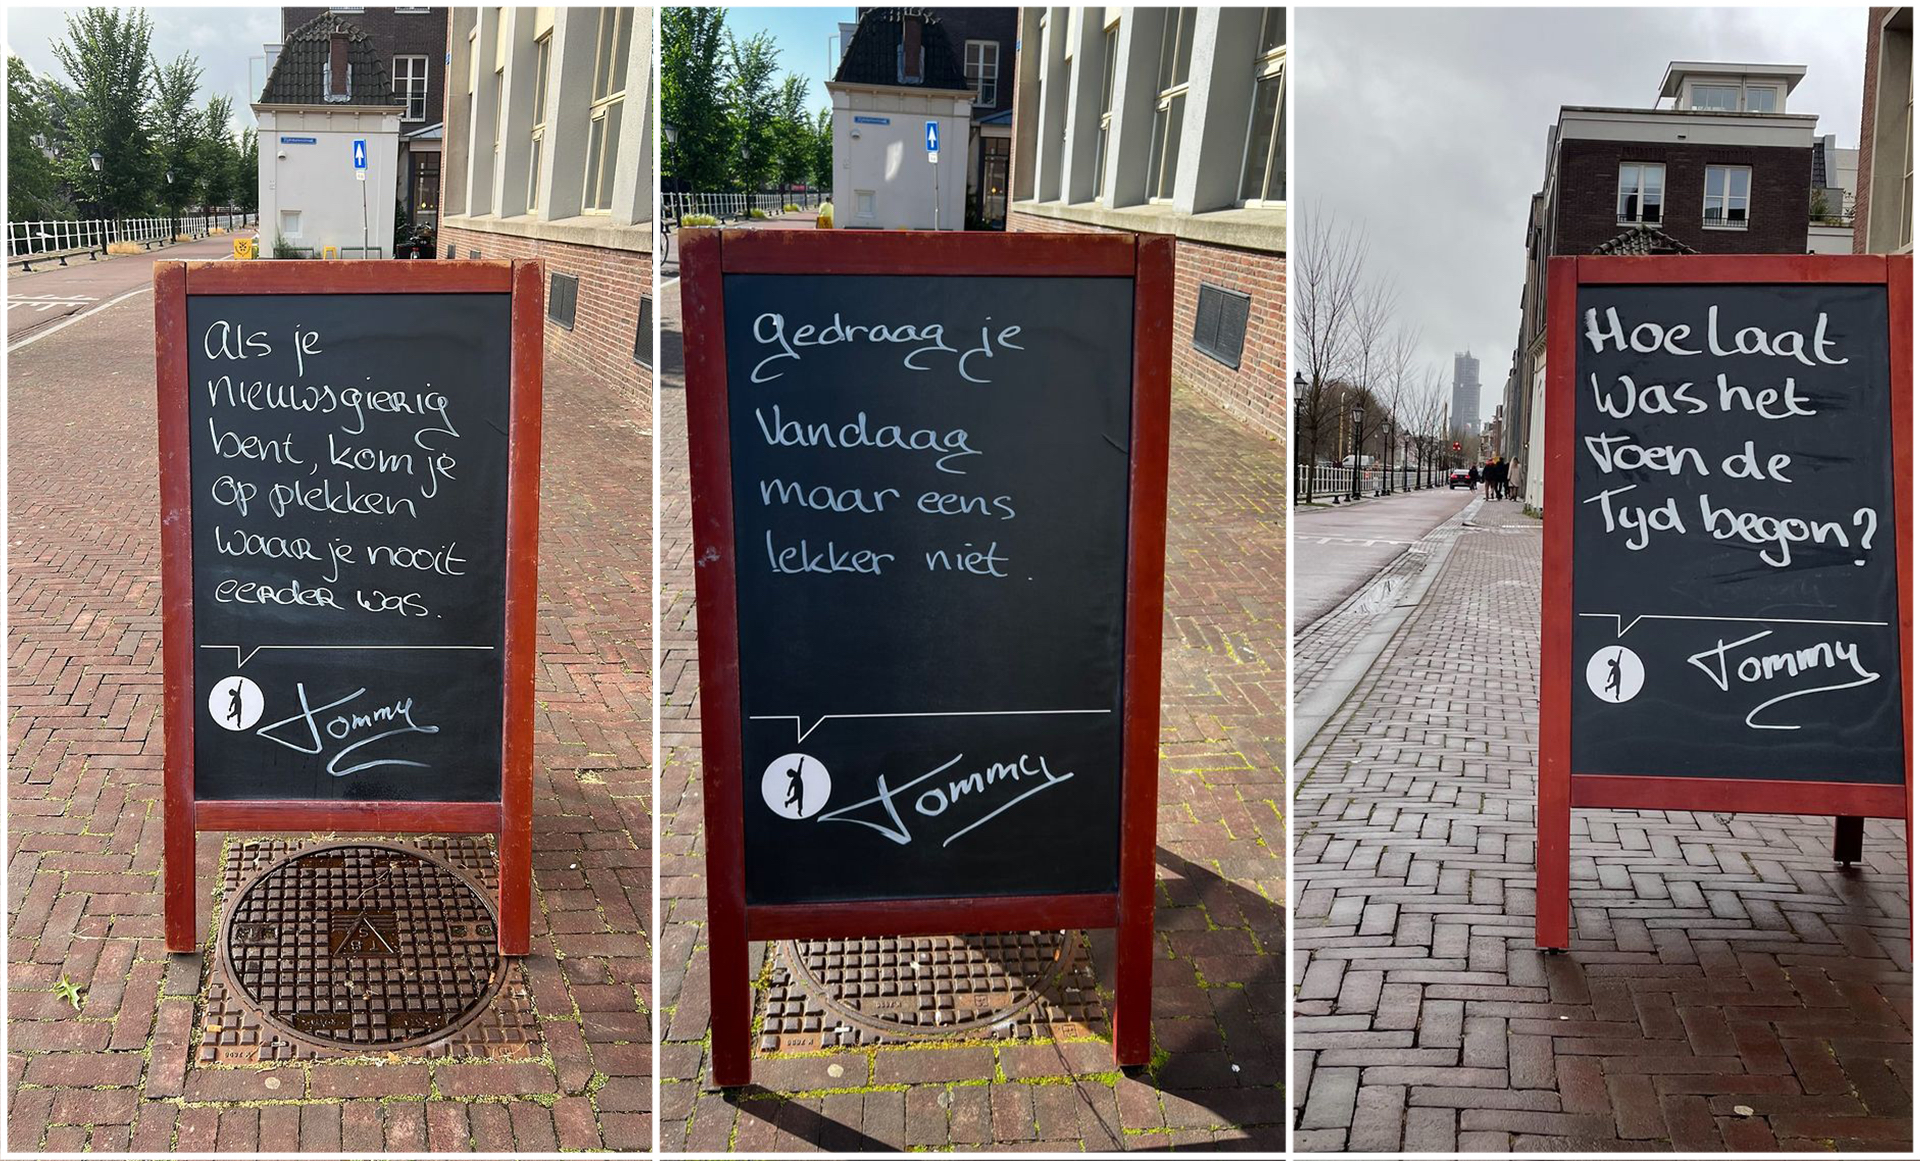 Als je
nieuwsgierig
bent, kom je
op plekken
waar je nooit
eerder was.
Tommy
gedraag je
Vandaag
maar eens
lekker niet.
Tommy
Hoe laat
Was het
Toen de
Tyd begon?
Tommy